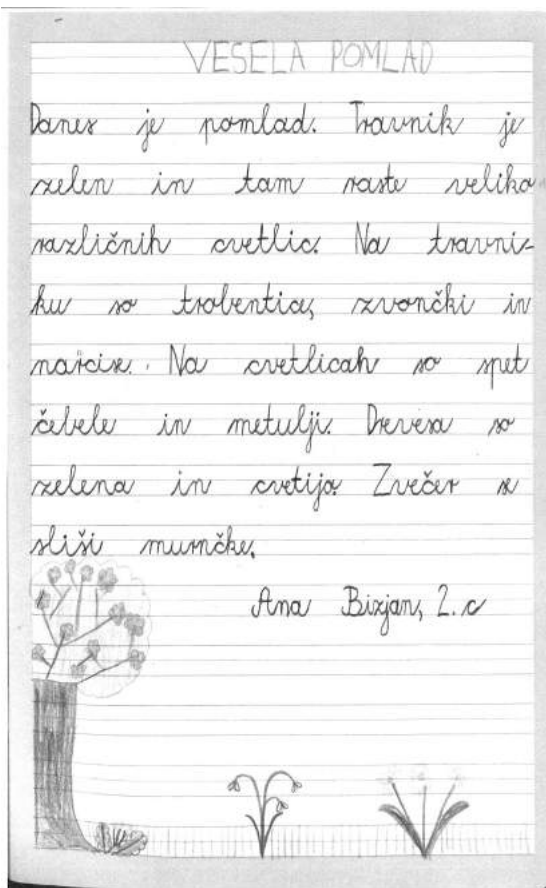 VESELA POMLAD
Danes je pomlad. Travnik je
zelen in tam raste veliko
različnih cvetlic. Na travni-
ku so trobentice, zvončki in
narcise. Na cvetlicah so spet
čebele in metulji. Drevesa so
zelena in cvetijo. Zvečer se
sliši murnčke.
Ana Bizjan, 2. c